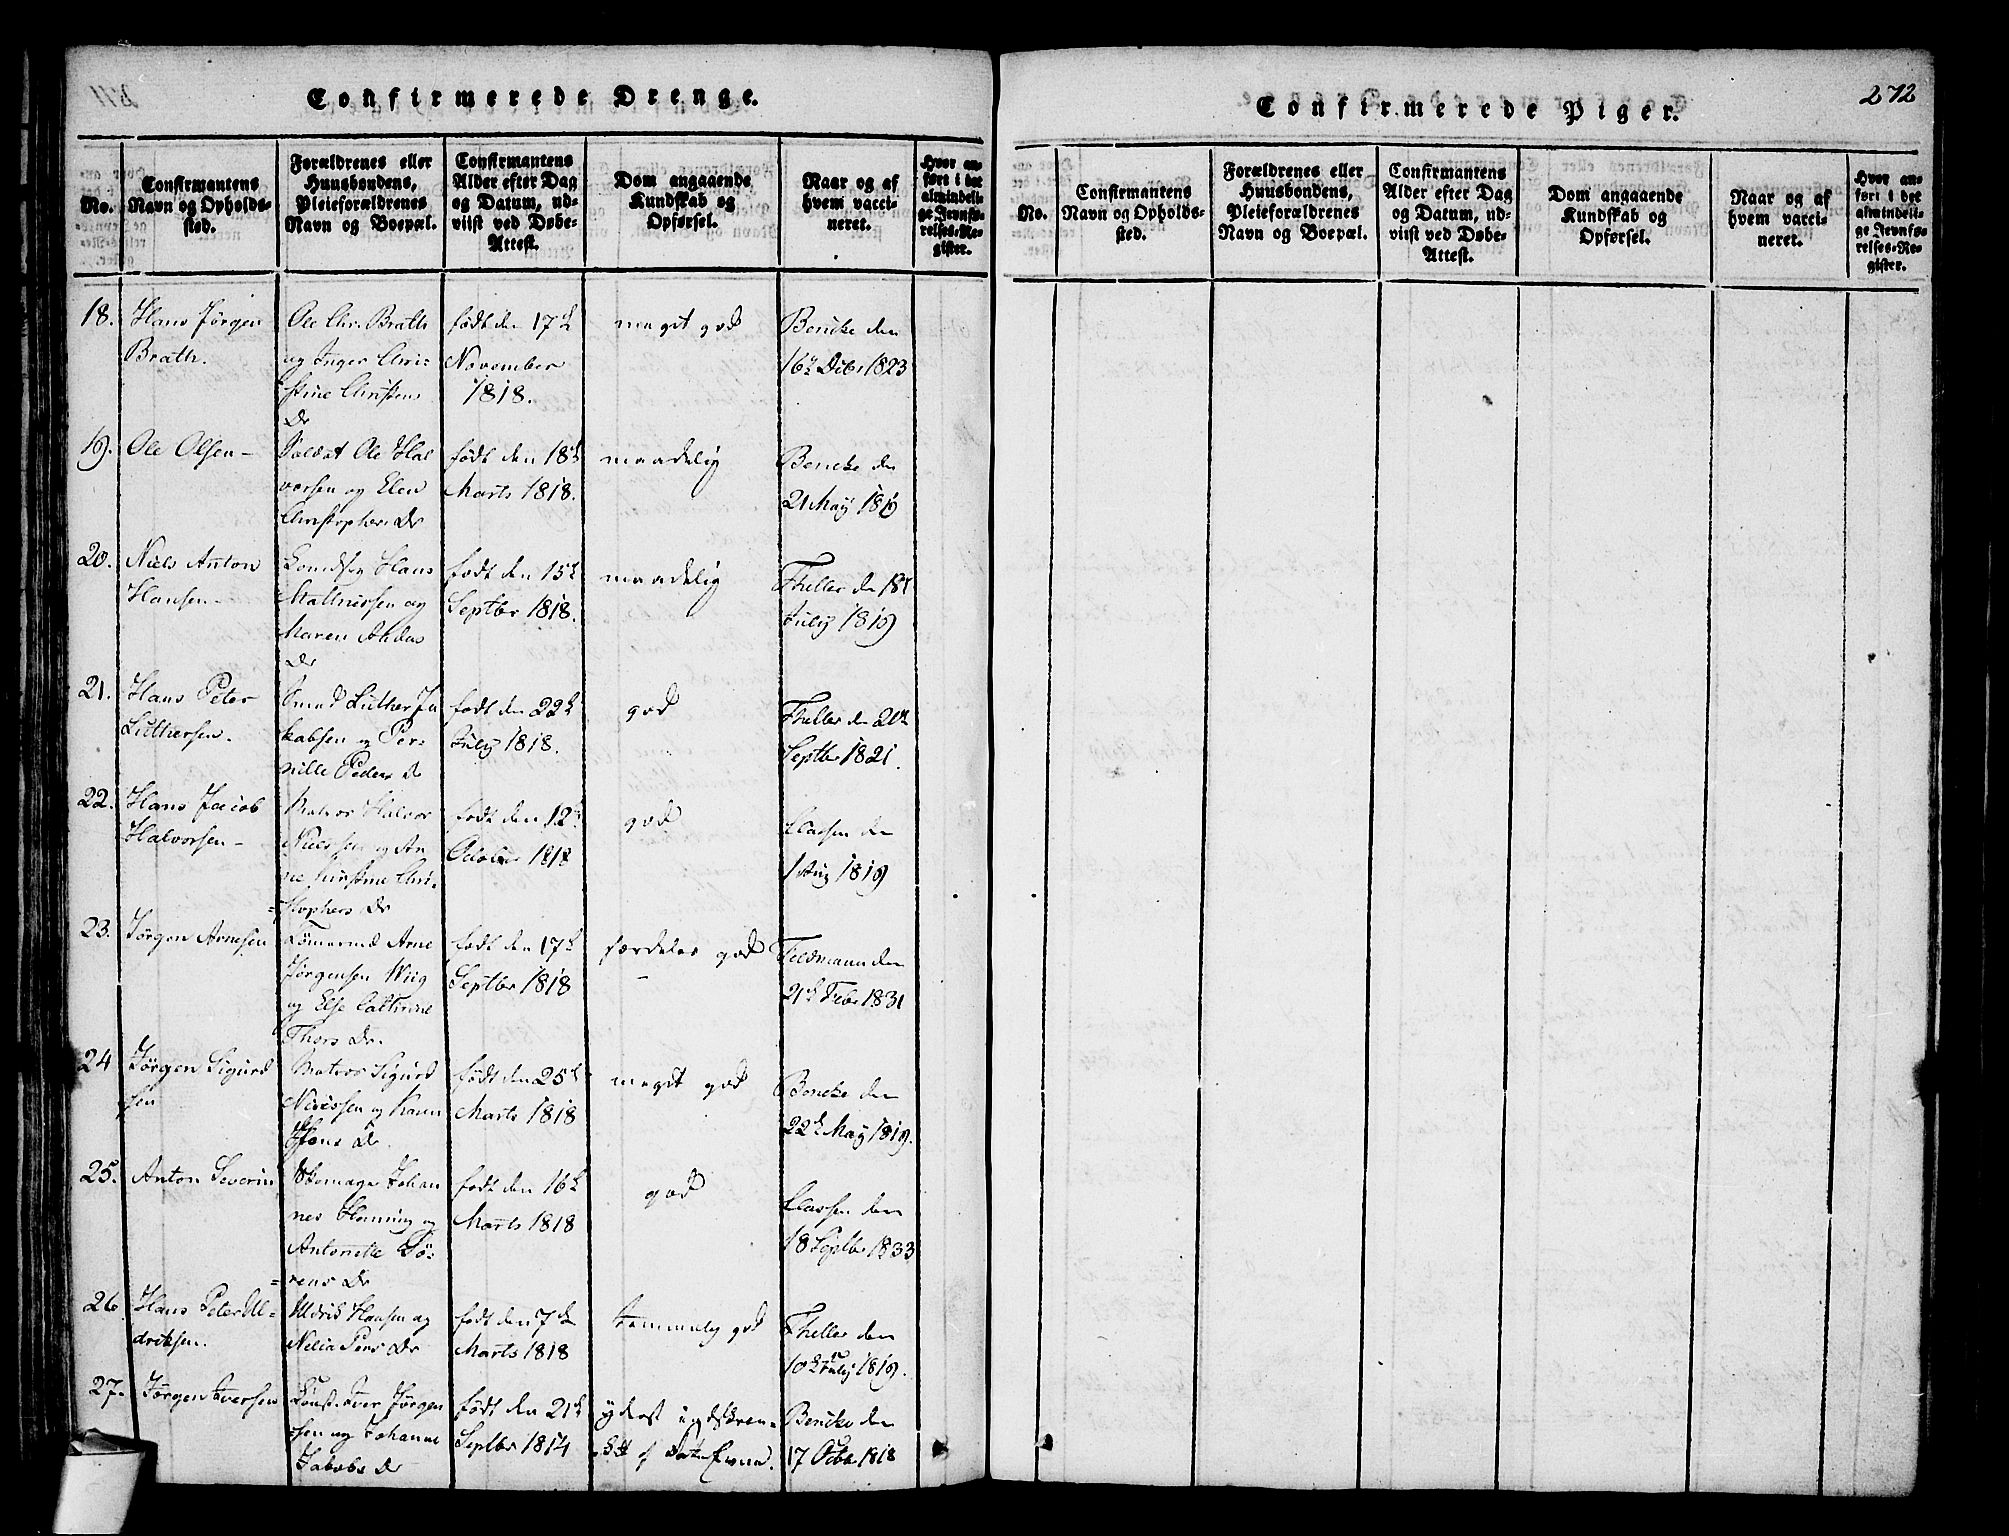 Confirmerede Drenge.
No.
Confirmantens
Navn og Opholds-
sted.
Forældrenes eller
Huusbondens,
Pleieforældrenes
Navn og Boepæl.
Confirmantens
Alder efter Dag
og Datum, ud-
viist ved Døbe-
Attest.
Dom angaaende
Kundskab og
Opførsel.
Naar og af
hvem vacci-
neret.
Hvor an-
ført i det
almindeli-
ge Jevnfø-
relses-Re-
gister.
18.
Hans Jörgen
Brath.
Ole Chr. Brath
og Inger Chri-
stine Christens
Dr
født den 17de
November
1818.
meget god
Bencke den
16de Decbr 1823
19.
Ole Olsen -
Soldat Ole Hal
vorsen og Elen
Christophers Dr
født den 18de
Marts 1818.
maadelig
Bencke den
21 May 1819
20.
Niels Anton
Hansen -
Hans
Mathiesen og
Maren Anders
Dr
født den 15de
Septbr 1818.
maadelig
Theller den 18de
July 1819
21.
Hans Peter
Luthersen.
Smed Luther Ja
kobsen og Per-
nille Peders Dr
født den 22de
July 1818.
god
Theller den 20de
Septbr 1821.
22.
Hans Jacob
Halvorsen -
Matros Halvor
Nielssen og An
ne Kirstine Chri-
=stophers Dr
født den 12te
October 1818
god
Classen den
1 Aug 1819
23.
Jörgen Arnesen
Tömermd Arne
Jörgensen Wiig
og Else Cathrine
Thors Dr.
født den 17de
Septbr 1818
særdeles god
Tiedmann den
21de Febr 1831
24
Jörgen Sigurd
sen
Matros Sigurd
Nielssen og Karen
Dr.
født den 25de
Marts 1818
meget god
Bencke den
22de May 1819.
25.
Anton Severin
Skomager Johan
nes Henning og
Antonette Sö-
=rens Dr
født den 16de
Marts 1818
god
Classen den
18 Septbr 1833
26
Hans Peter Ul-
driksen.
Uldrik Hansen og
Nelia Pers Dr
født den 7de
Marts 1818
temmelig god
Theller den
10de July 1819.
27.
Jörgen Iversen
Iver Jörgen
-sen og Johanne
Jakobs Dr
født den 21de
Septbr 1814
yderst indskræn-
Evne.
Bencke den
17 Octbr 1818
Confirmerede Piger.
272
No.
Confirmantens
Navn og Opholds-
sted.
Forældrenes eller
Huusbondens,
Pleieforældrenes
Navn og Boepæl.
Confirmantens
Alder efter Dag
og Datum, ud-
viist ved Døbe-
Attest.
Dom angaaende
Kundskab og
Opførsel.
Naar og af
hvem vacci-
neret.
Hvor an-
ført i det
almindeli-
ge Jevnfø-
relses-Re-
gister.